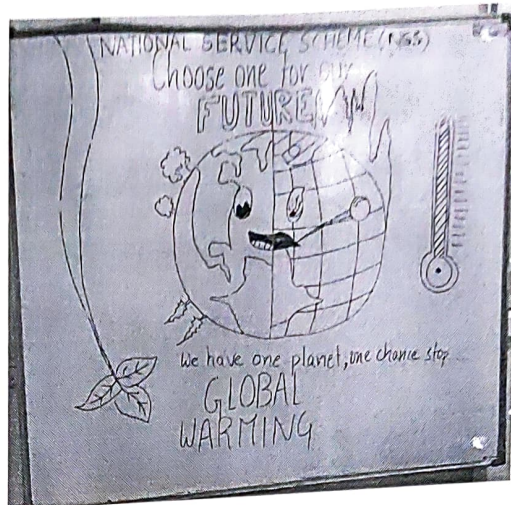 NATIONAL SERVICE SCHEME (NSS)
Choose one for our
FUTURE
We have one planet, one chance stop...
GLOBAL
WARMING